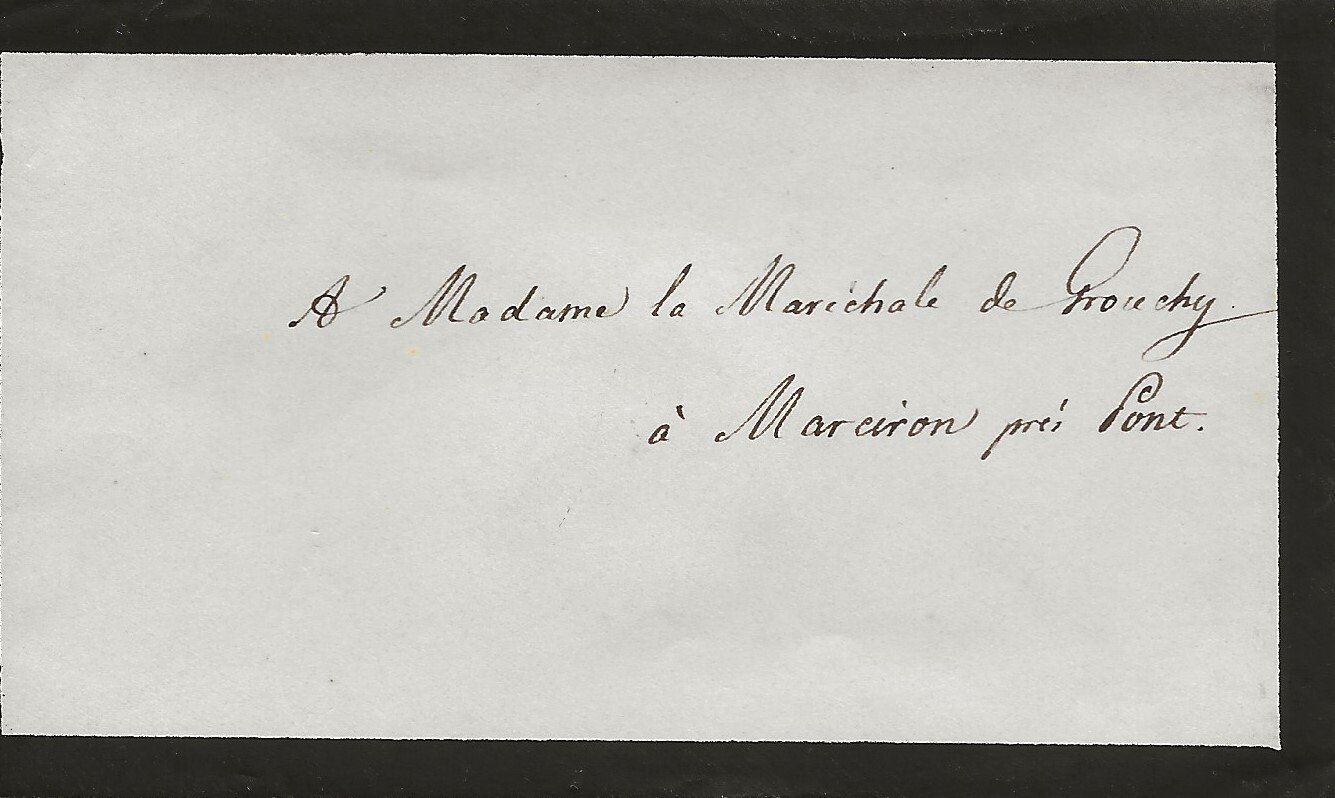 A Madame la Maréchale de Grouchy.
à Marciron prés Pont.